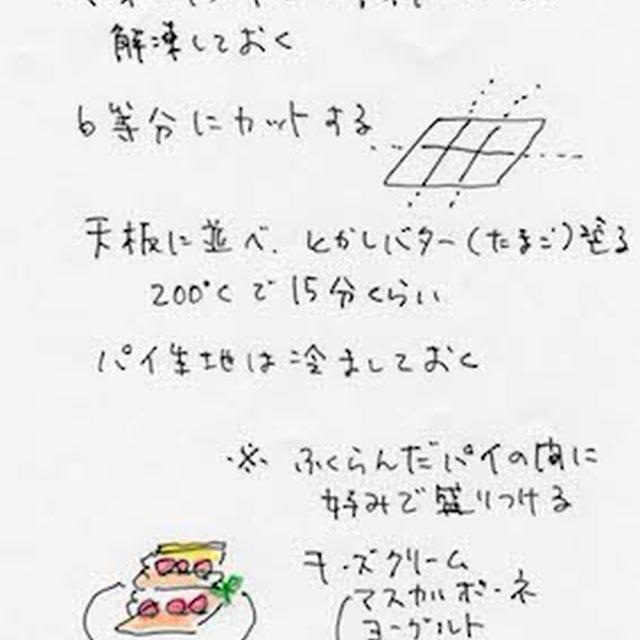 解凍しておく
6等分にカットする
天板に並べ、とかしバター(たまご)塗る
200℃で15分くらい
パイ生地は冷ましておく
※ ふくらんだパイの間に
好みで盛りつける
チーズクリーム
(マスカルポーネ
ヨーグルト